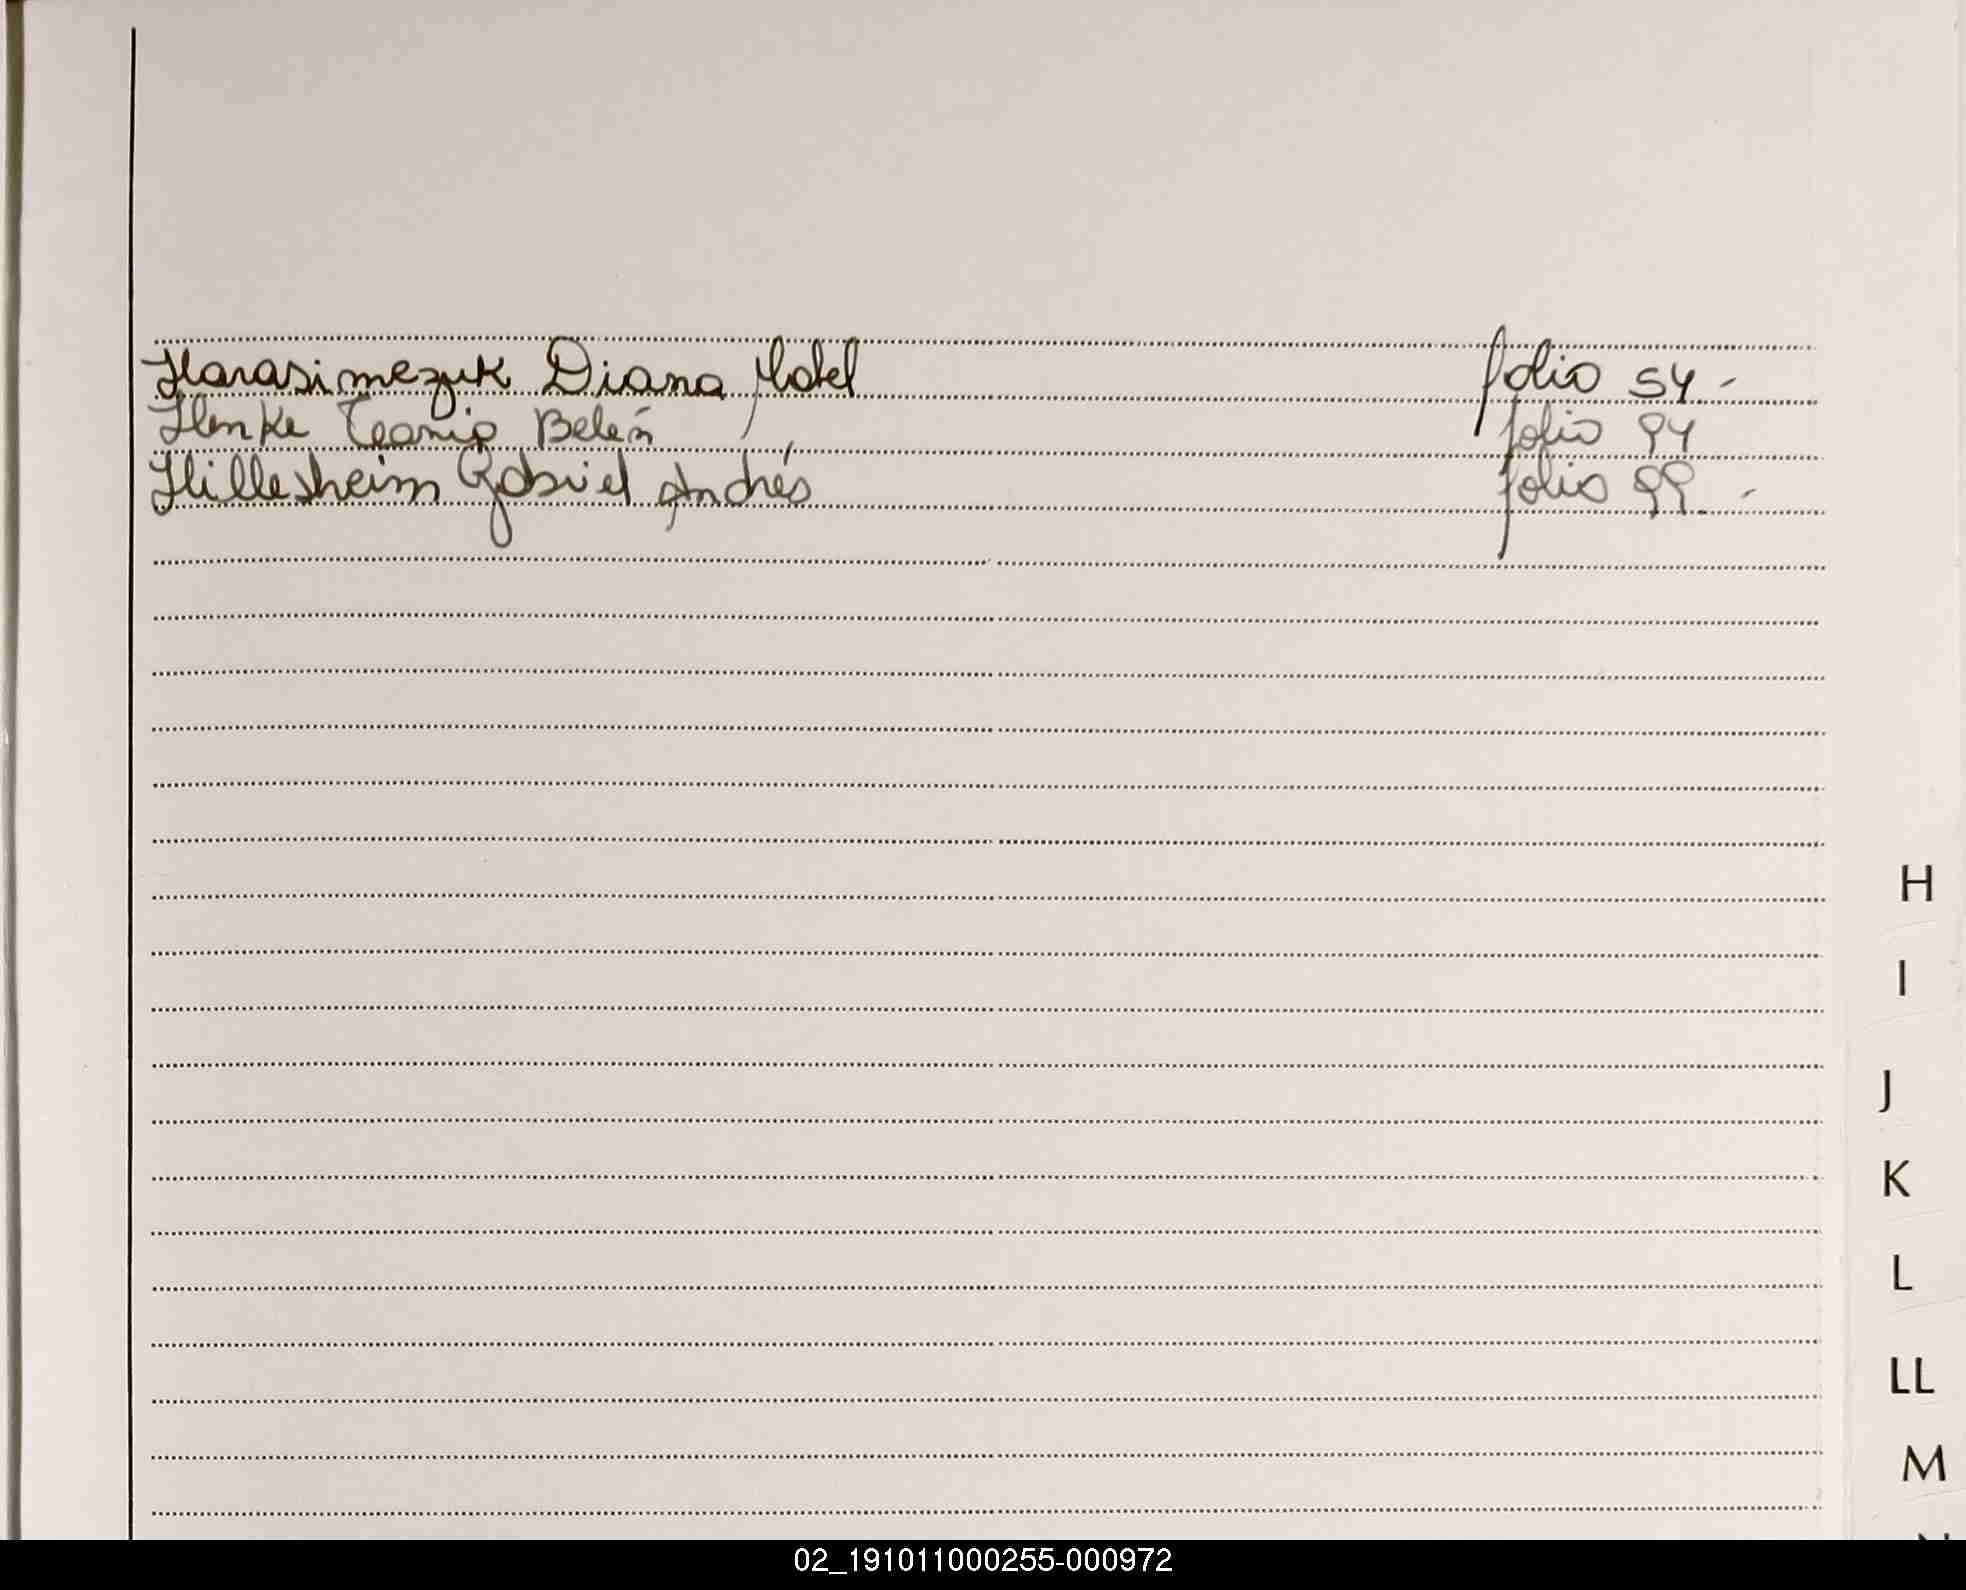 Harasimezuk Diana Mabel folio 54 -
Henke Tania Belén folio 94
Hillesheim Gabriel Andrés folio 99. -
H
I
J
K
L
LL
M
02_191011000255-000972